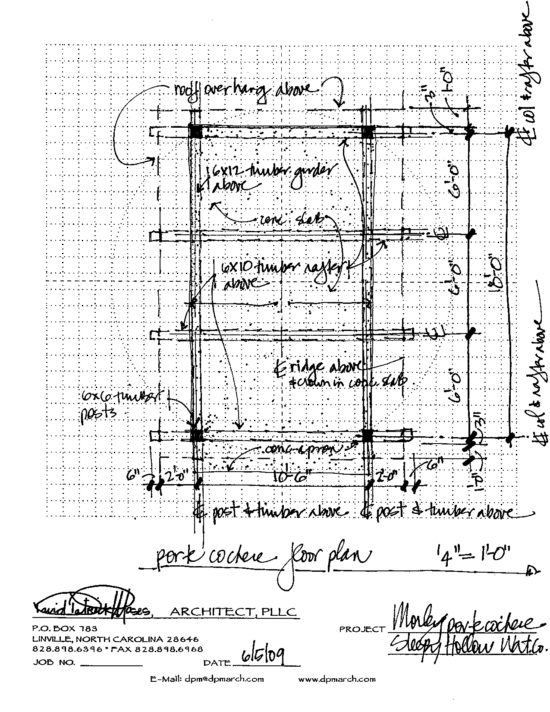 roof overhang above
℄ col & rafter above
3"
1'-0"
6x12 timber girder
above
6'-0"
conc. slab
℄
6x10 timber rafter
above
6'-0"
18'-0"
℄
℄ ridge above
& crown in conc slab
6'-0"
℄ col & rafter above
6x6 timber
posts
3"
conc apron
6"
2'-0"
10'-6"
2'-0"
6"
1'-0"
℄ post & timber above
℄ post & timber above
porte cochere floor plan
1/4" = 1'-0"
David Patrick Moses, ARCHITECT, PLLC
P.O. BOX 783
LINVILLE, NORTH CAROLINA 28646
828.898.6396 * FAX 828.898.6968
JOB NO.
DATE 6/5/09
PROJECT Morley porte cochere
Sleepy Hollow Wat. Co.
E-Mail: dpm@dpmarch.com
www.dpmarch.com